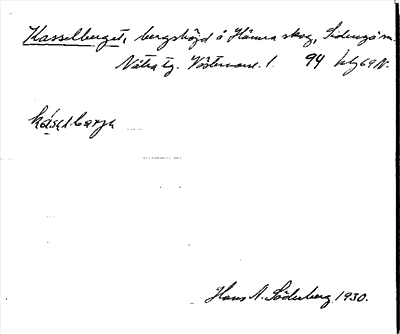 Kasselberget, bergshöjd å Hämra skog, Sidensjö sn.
Nätra tg. Västernorrl. l. 94
kásslbarje
Hans A. Söderberg 1930.